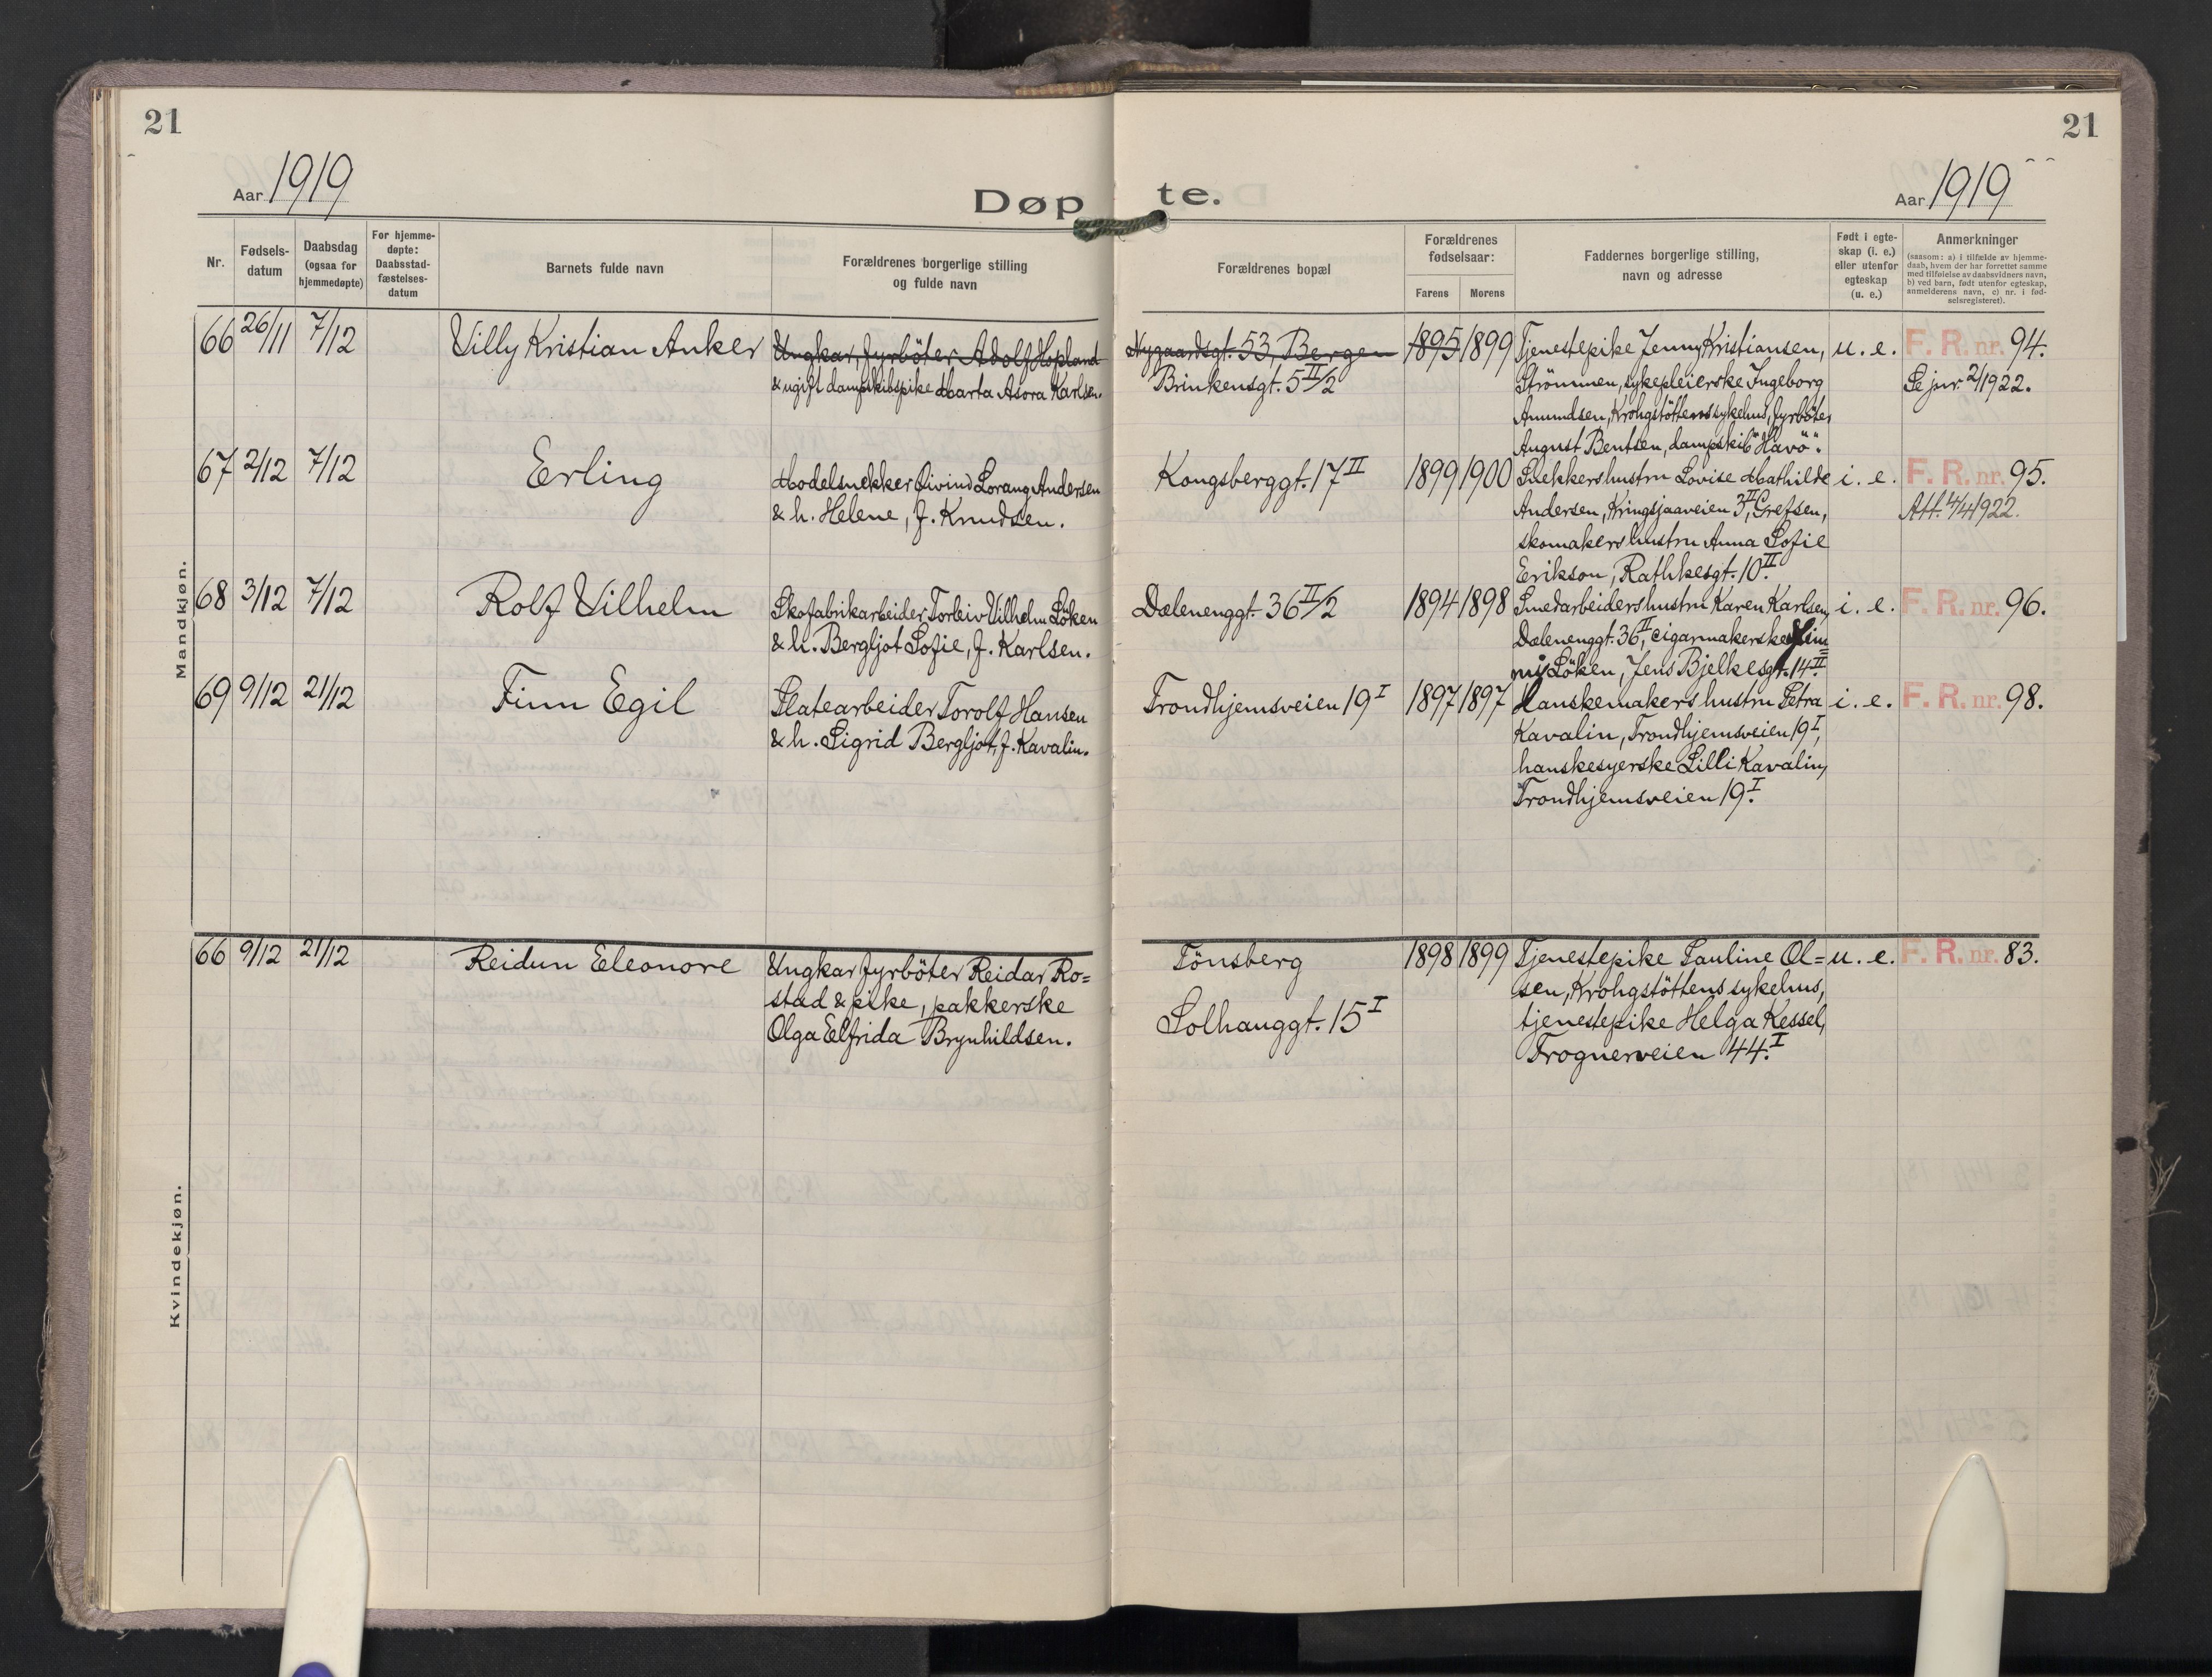 21
21
Aar 1919
Døp
te.
Aar 1919
Nr.
Fødsels-
datum
Daabsdag
(ogsaa for
hjemmedøpte)
For hjemme-
døpte:
Daabsstad-
fæstelses-
datum
Barnets fulde navn
Forældrenes borgerlige stilling
og fulde navn
Forældrenes bopæl
Forældrenes
fødselsaar:
Farens
Morens
Faddernes borgerlige stilling,
navn og adresse
Født i egte-
skap (i. e.)
eller utenfor
egteskap
(u. e.)
Anmerkninger
(saasom: a) i tilfælde av hjemme-
daab, hvem der har forrettet samme
med tilføielse av daabsvidners navn,
b) ved barn, født utenfor egteskap,
anmelderens navn, c) nr. i fød-
selsregisteret).
Mandkjøn.
66 26/11 7/12 Villy Kristian Anker
Ungkar, fyrböter Adolf Hopland
& ugift dampskibspike Marta Asora Karlsen.
Nygaardsgt. 53, Bergen
Brinkensgt. 5 II/2
1895 1899
Tjenestepike Jenny Kristiansen,
Strömmen, sykepleierske Ingeborg
Amundsen, Krohgstöttens sykehus, fyrböter
August Bentsen, dampskib "Havö".
u. e.
F. R. nr. 94.
Se jnr. 2/1922.
67 2/12 7/12 Erling
Modelsnekker Øivind Lorang Andersen
& h. Helene, f. Knudsen.
Kongsberggt. 17 II
1899 1900
Snekkershustru Lovise Mathilde
Andersen, Kringsjaaveien 3 II, Grefsen,
skomakershustru Anna Sofie
Erikson, Rathkesgt. 10 II.
i. e.
F. R. nr. 95.
Att. 4/4 1922.
68 3/12 7/12 Rolf Vilhelm
Skofabrikarbeider Torleiv Vilhelm Löken
& h. Bergljot Sofie, f. Karlsen.
Dælenenggt. 36 II/2
1894 1898
Smedarbeidershustru Karen Karlsen,
Dælenenggt. 36 II, cigarmakerske
Löken, Jens Bjelkesgt. 14 II.
i. e.
F. R. nr. 96.
69 9/12 21/12 Finn Egil
Platearbeider Torolf Hansen
& h. Sigrid Bergljot, f. Kavalin.
Trondhjemsveien 19 I
1897 1897
Hanskemakershustru Petra
Kavalin, Trondhjemsveien 19 I,
hanskesyerske Lilli Kavalin,
Trondhjemsveien 19 I.
i. e.
F. R. nr. 98.
Kvindekjøn.
66 9/12 21/12 Reidun Eleonore
Ungkar fyrböter Reidar Ro=
stad & pike, pakkerske
Olga Elfrida Brynhildsen.
Tönsberg
Solhauggt. 15 I
1898 1899
Tjenestepike Pauline Ol=
sen, Krohgstöttens sykehus,
tjenestepike Helga Kessel,
Frognerveien 44. I
u. e.
F. R. nr. 83.